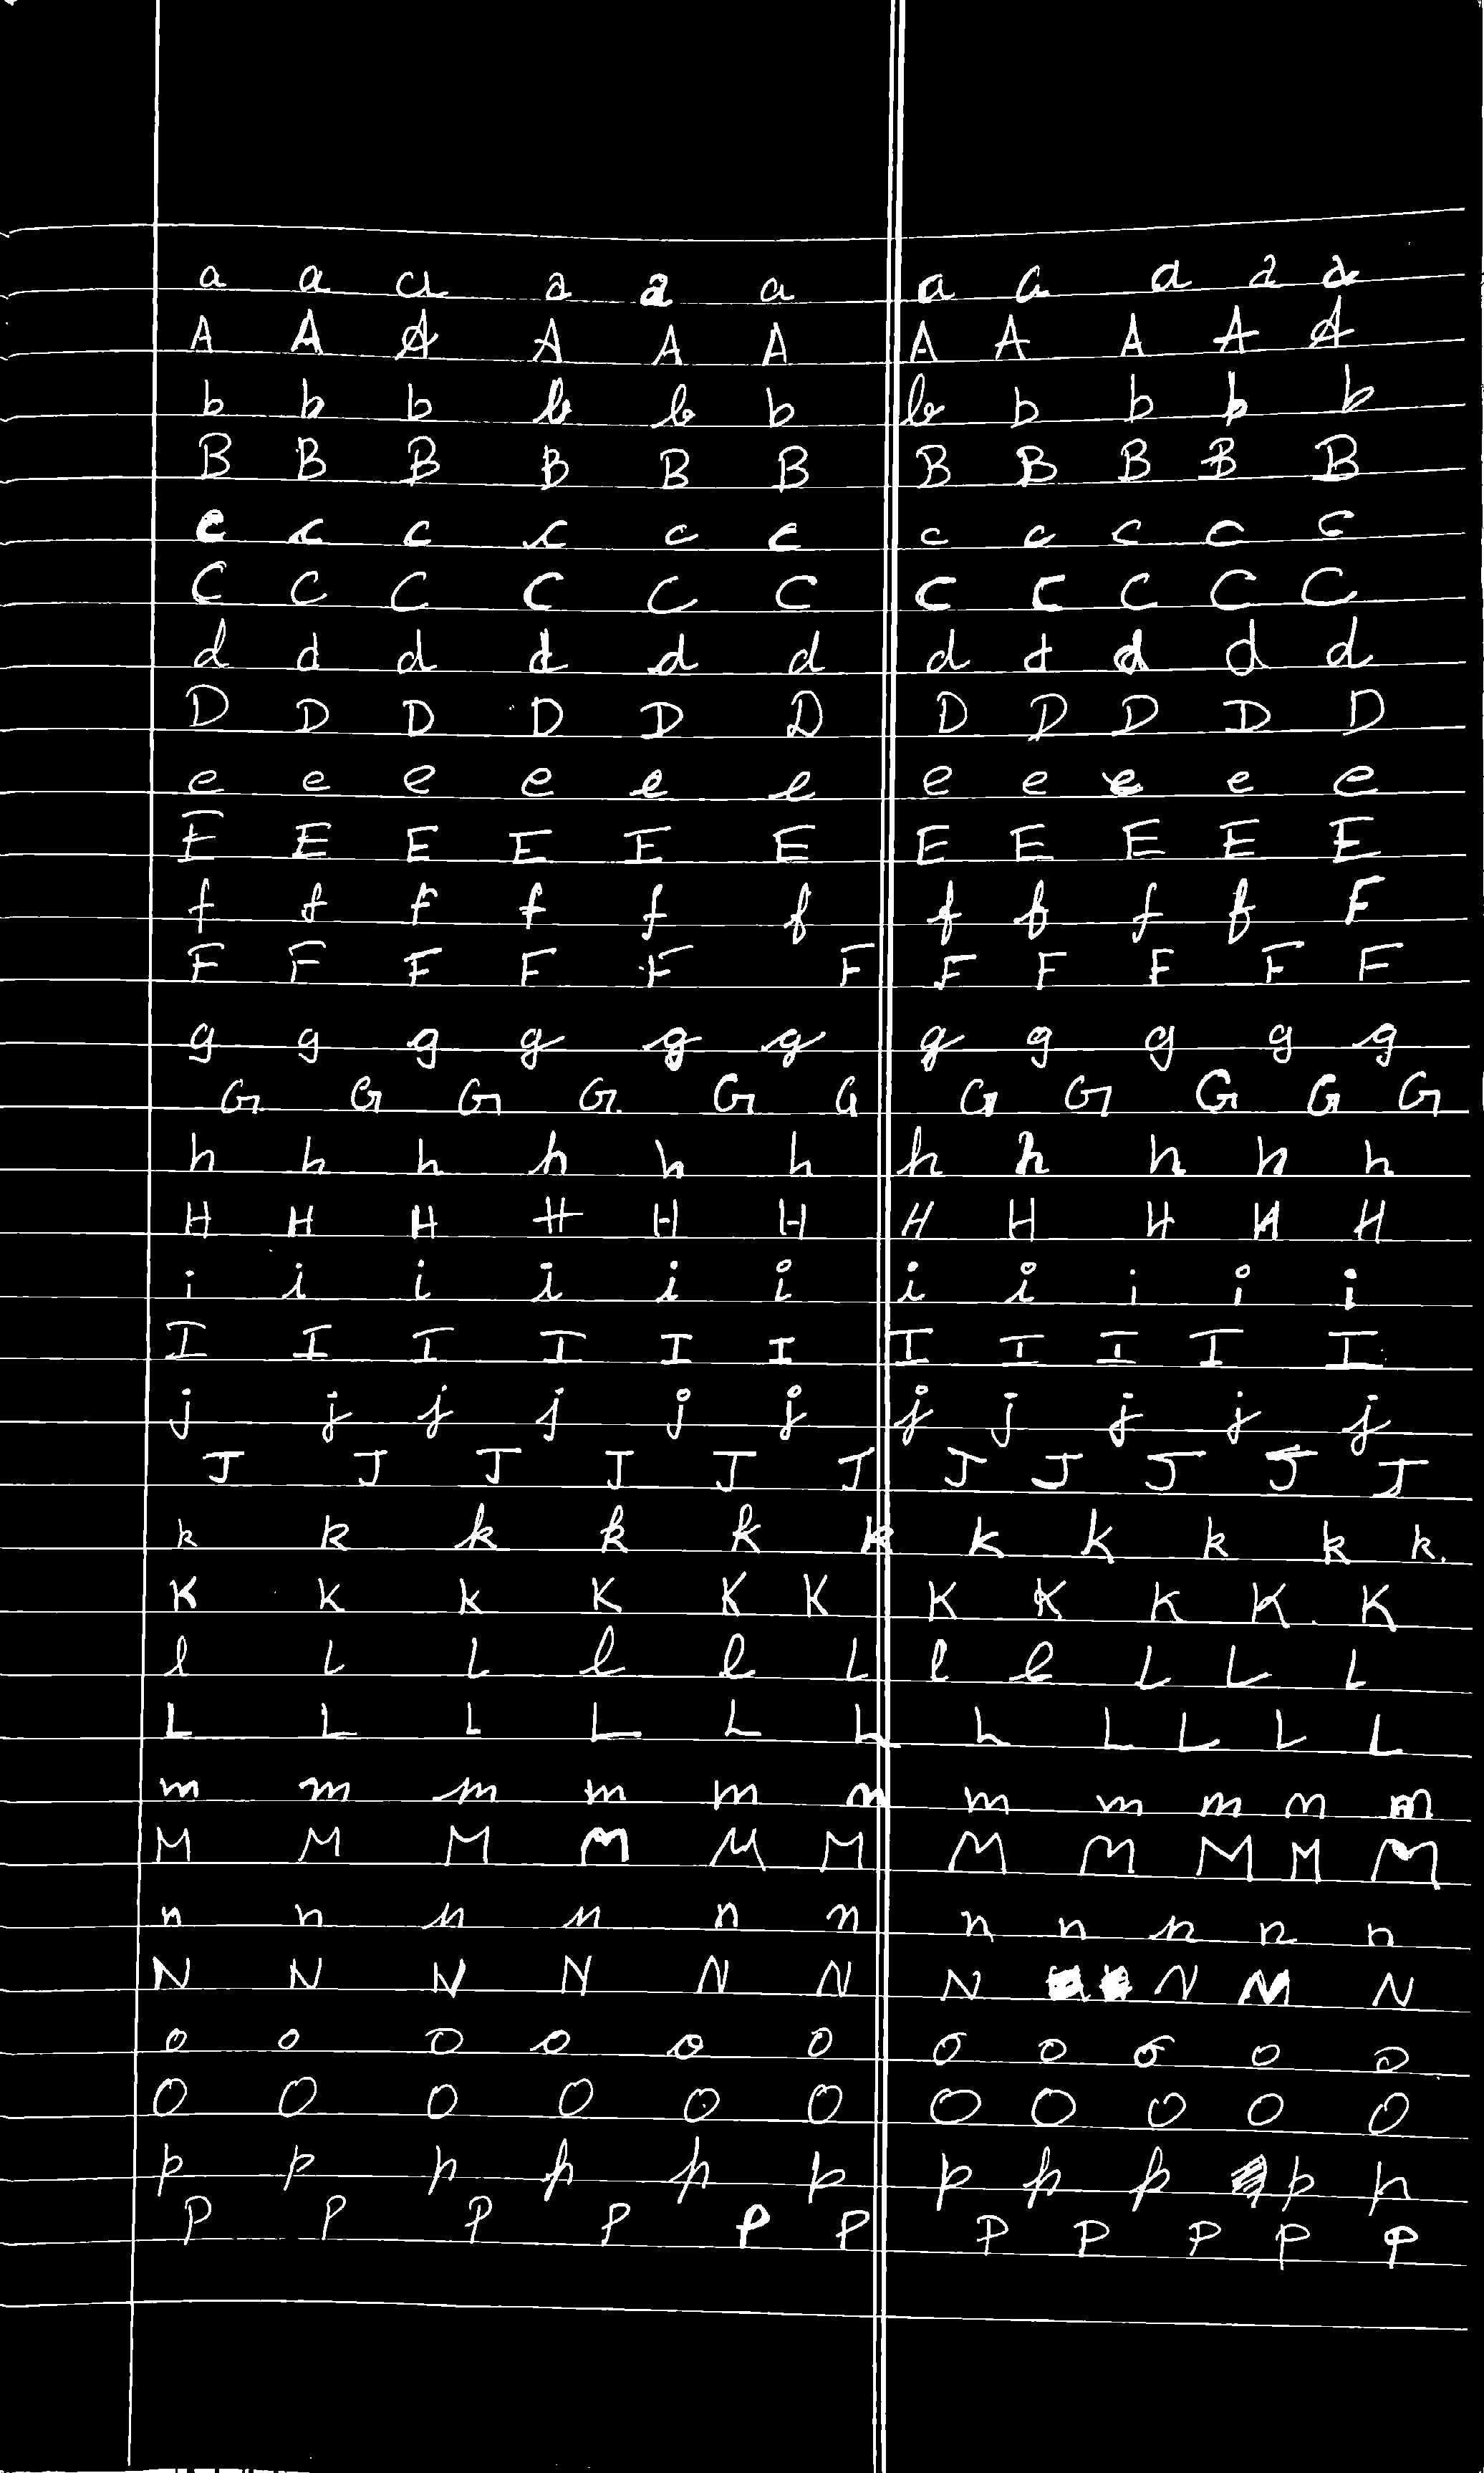 a a a a a a a a a a a
A A A A A A A A A A A
b b b b b b b b b b b
B B B B B B B B B B B
c c c c c c c c c c c
C C C C C C C C C C C
d d d d d d d d d d d
D D D D D D D D D D D
e e e e e e e e e e e
E E E E E E E E E E E
f f F f f f f f f f F
F F F F F F F F F F F
g g g g g g g g g g g
G G G G G G G G G G G
h h h h h h h h h h h
H H H H H H H H H H H
i i i i i i i i i i i
I I I I I I I I I I I
j j j j j j j j j j j
J J J J J J J J J J J
k k k k k k k k k k k.
K K K K K K K K K K K
l L L l l L l l L L L
L L L L L L L L L L L
m m m m m m m m m m m
M M M M M M M M M M M
n n n n n n n n n n n
N N N N N N N N N
o o o o o o o o o o o
O O O O O O O O O O O
p p p p p p p p p p p
P P P P P P P P P P P